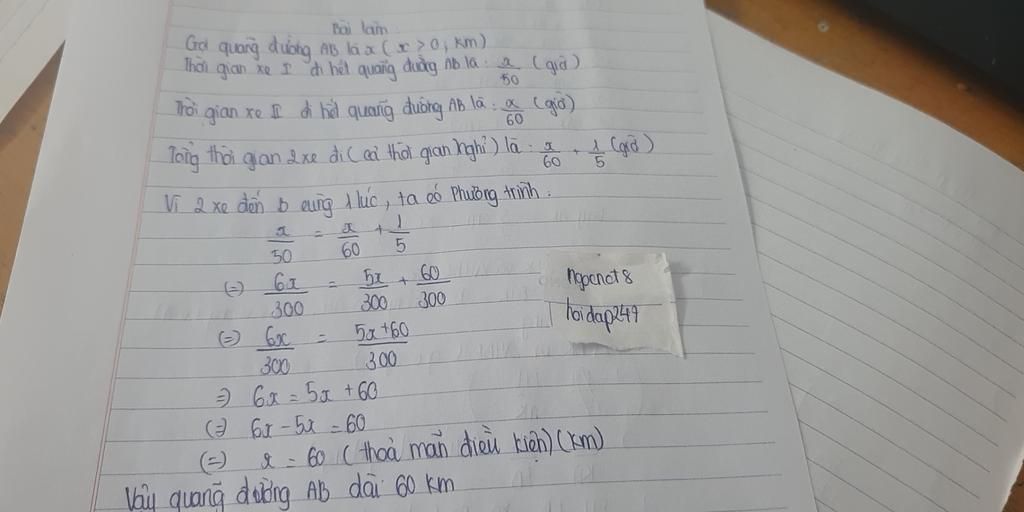 Bài làm
Gọi quãng đường AB là x ( x > 0, km)
Thời gian xe I đi hết quãng đường AB là: x/50 (giờ)
Thời gian xe II đi hết quãng đường AB là: x/60 (giờ)
Tổng thời gian 2 xe đi ( cả thời gian nghỉ) là: x/60 + 1/5 (giờ)
Vì 2 xe đến b cùng 1 lúc, ta có phương trình:
x/50 = x/60 + 1/5
(=) 6x/300 = 5x/300 + 60/300
(=) 6x/300 = 5x+60/300
=) 6x = 5x + 60
(=) 6x - 5x = 60
(=) x = 60 ( thoả mãn điều kiện) (km)
Vậy quãng đường AB dài 60 km
ngocnct8
hoidap247